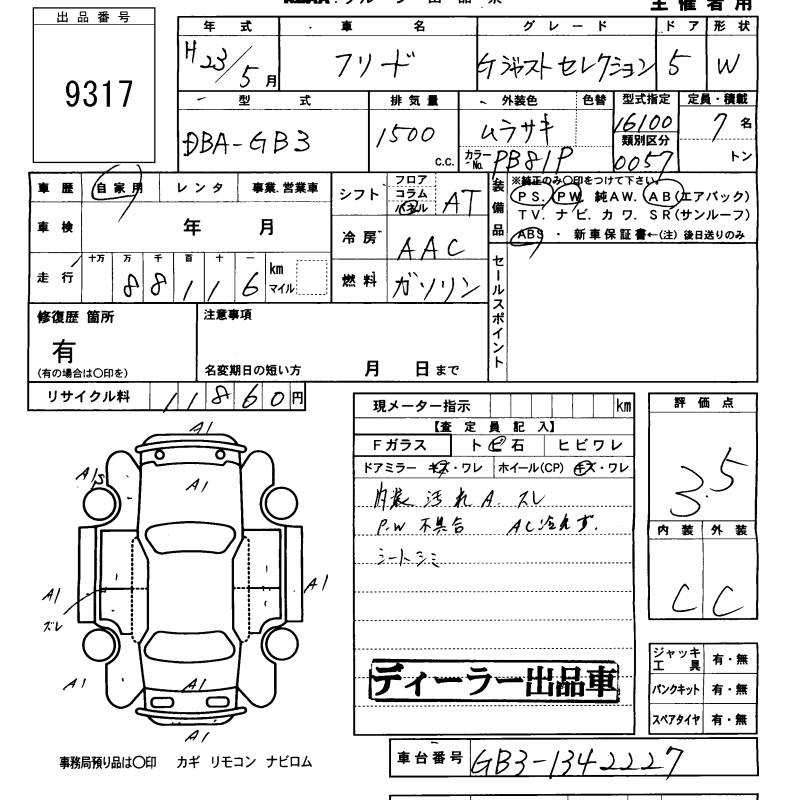 主催者用
出品番号
9317
年式 車名 グレード ドア 形状
H23/5月 フリード Gジャストセレクション 5 W
型式 排気量 外装色 色替 型式指定 定員・積載
DBA-GB3 1500 C.C. ムラサキ 16100 7名
類別区分
カラーNo. PB81P 0057 トン
車歴 自家用 レンタ 事業.営業車
車検 年 月
走行 十万 万 千 百 十 一 km マイル
88116
シフト フロア コラム パネル AT
冷房 AAC
燃料 ガソリン
装備品
※純正のみ〇印をつけて下さい。
PS. PW. 純AW. AB(エアバック)
TV. ナビ. カワ. SR(サンルーフ)
ABS ・ 新車保証書←(注) 後日送りのみ
セールスポイント
修復歴 箇所
有
(有の場合は〇印を)
注意事項
名変期日の短い方 月 日まで
リサイクル料 11860円
現メーター指示 km
【査定員記入】
Fガラス ト ビ 石 ヒビワレ
ドアミラー キズ・ワレ ホイール(CP) キズ・ワレ
内装 汚れ A. スレ
P.W 不具合 AC冷えず.
シートシミ
ディーラー出品車
評価点
3.5
内装 外装
C C
ジャッキ工具 有・無
パンクキット 有・無
スペアタイヤ 有・無
車台番号 GB3-1342227
A1
A1
A1
A1
ズレ
A1
A1
A1
A1
A1
事務局預り品は〇印 カギ リモコン ナビロム